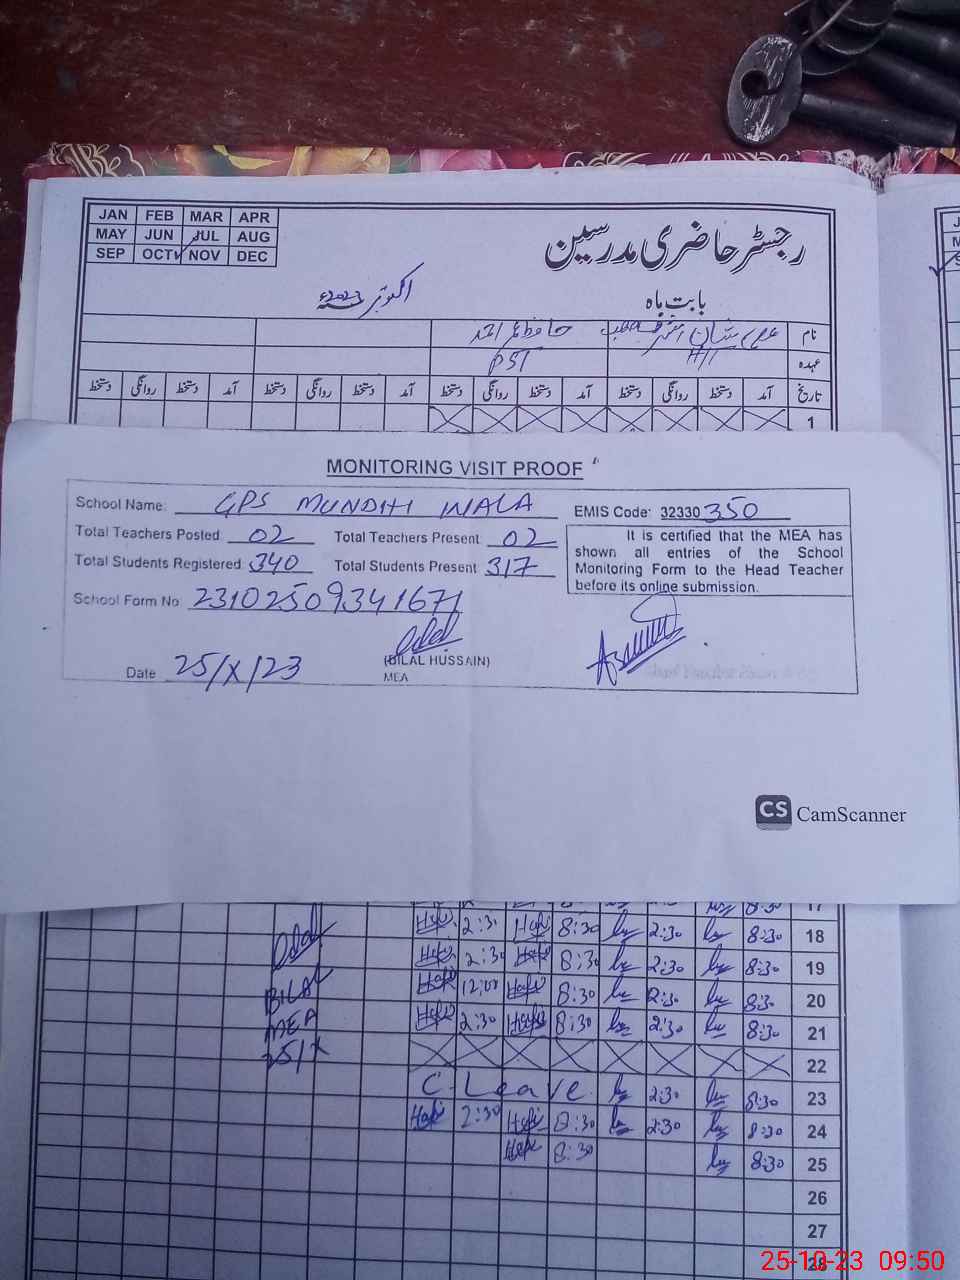 JAN FEB MAR APR
MAY JUN JUL AUG
SEP OCT NOV DEC
رجسٹر حاضری مدرسین
بابت ماہ
اکتوبر 2023ء
نام
عہدہ PST
تاریخ آمد دستخط روانگی دستخط آمد دستخط روانگی دستخط آمد دستخط روانگی دستخط آمد دستخط روانگی دستخط
1
MONITORING VISIT PROOF
School Name: GPS MUNDHI WALA
EMIS Code: 32330350
Total Teachers Posted 02 Total Teachers Present 02
Total Students Registered 340 Total Students Present 317
School Form No 23102509341671
It is certified that the MEA has
shown all entries of the School
Monitoring Form to the Head Teacher
before its online submission.
(BILAL HUSSAIN)
MEA
Date 25/X/23
CS CamScanner
17
2:30 8:30 2:30 8:30 18
2:30 8:30 2:30 8:30 19
12:00 8:30 2:30 8:30 20
2:30 8:30 2:30 8:30 21
BILAL
MEA
25/X
22
C-Leave 2:30 8:30 23
2:30 8:30 2:30 8:30 24
8:30 8:30 25
26
27
28
25-10-23 09:50